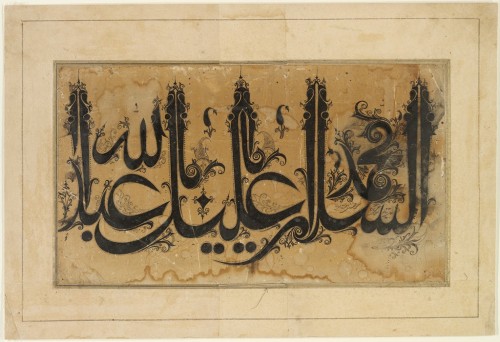 السلام عليك يا ابا عبد الله